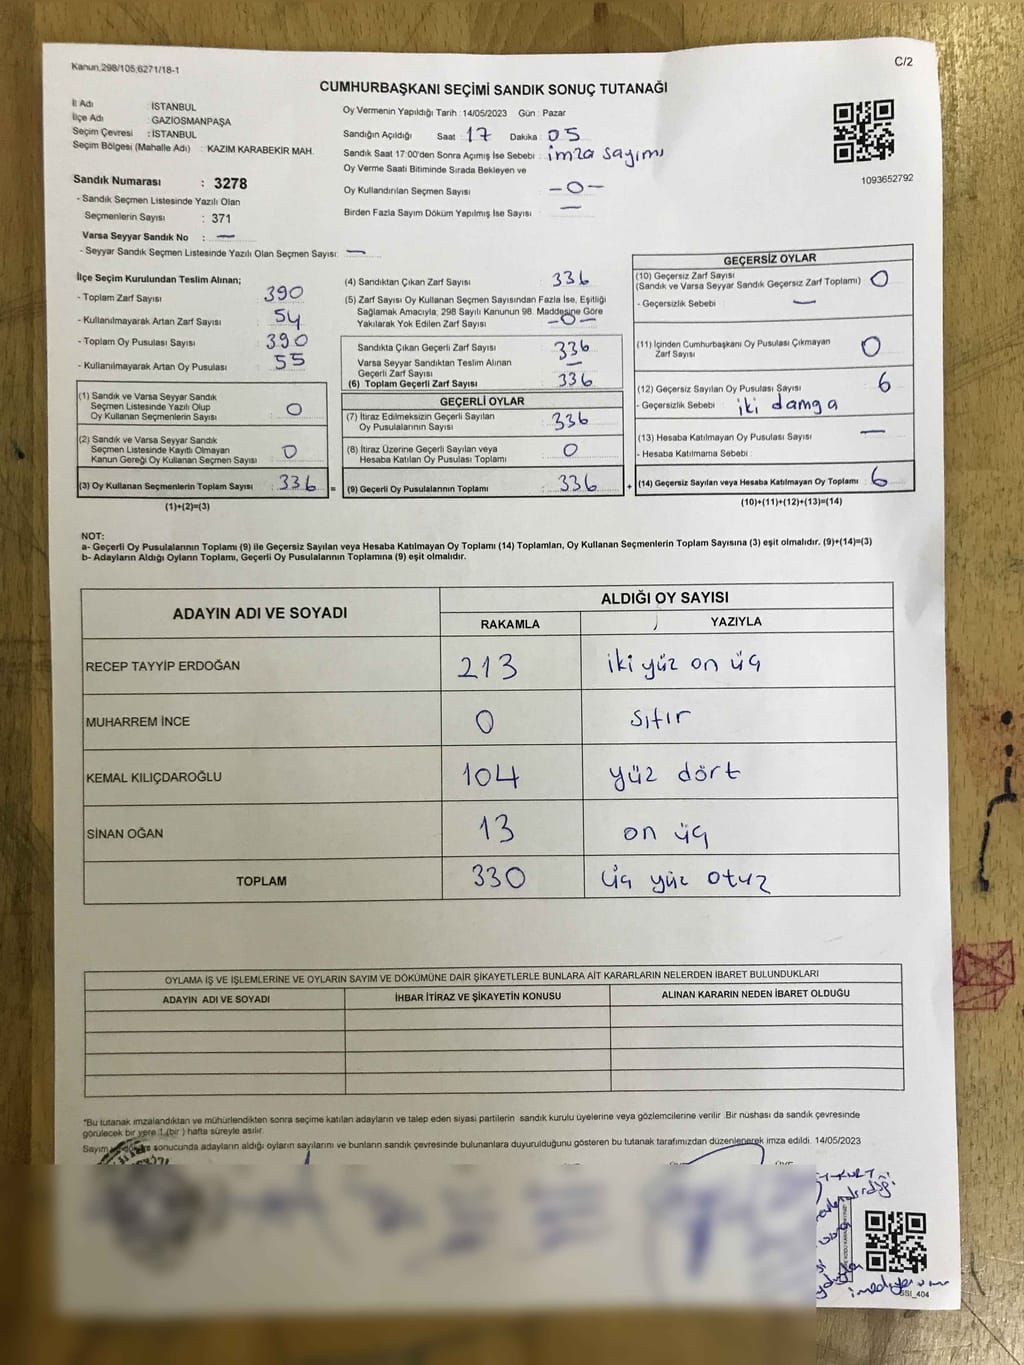 Kanun,298/105,6271/18-1
C/2
CUMHURBAŞKANI SEÇİMİ SANDIK SONUÇ TUTANAĞI
İl Adı : İSTANBUL
İlçe Adı : GAZİOSMANPAŞA
Seçim Çevresi : İSTANBUL
Seçim Bölgesi (Mahalle Adı) : KAZIM KARABEKİR MAH.
Sandık Numarası : 3278
- Sandık Seçmen Listesinde Yazılı Olan
Seçmenlerin Sayısı : 371
Varsa Seyyar Sandık No : —
- Seyyar Sandık Seçmen Listesinde Yazılı Olan Seçmen Sayısı: —
Oy Vermenin Yapıldığı Tarih : 14/05/2023 Gün : Pazar
Sandığın Açıldığı Saat : 17 Dakika : 05
Sandık Saat 17:00'den Sonra Açımış İse Sebebi : imza sayımı
Oy Verme Saati Bitiminde Sırada Bekleyen ve
Oy Kullandırılan Seçmen Sayısı : —0—
Birden Fazla Sayım Döküm Yapılmış İse Sayısı : —
1093652792
İlçe Seçim Kurulundan Teslim Alınan;
- Toplam Zarf Sayısı : 390
- Kullanılmayarak Artan Zarf Sayısı : 54
- Toplam Oy Pusulası Sayısı : 390
- Kullanılmayarak Artan Oy Pusulası : 55
(1) Sandık ve Varsa Seyyar Sandık
Seçmen Listesinde Yazılı Olup
Oy Kullanan Seçmenlerin Sayısı : 0
(2) Sandık ve Varsa Seyyar Sandık
Seçmen Listesinde Kayıtlı Olmayan
Kanun Gereği Oy Kullanan Seçmen Sayısı : 0
(3) Oy Kullanan Seçmenlerin Toplam Sayısı : 336
(1)+(2)=(3)
=
(4) Sandıktan Çıkan Zarf Sayısı : 336
(5) Zarf Sayısı Oy Kullanan Seçmen Sayısından Fazla İse, Eşitliği
Sağlamak Amacıyla, 298 Sayılı Kanunun 98. Maddesine Göre
Yakılarak Yok Edilen Zarf Sayısı : —0—
Sandıkta Çıkan Geçerli Zarf Sayısı : 336
Varsa Seyyar Sandıktan Teslim Alınan
Geçerli Zarf Sayısı : —
(6) Toplam Geçerli Zarf Sayısı : 336
GEÇERLİ OYLAR
(7) İtiraz Edilmeksizin Geçerli Sayılan
Oy Pusulalarının Sayısı : 336
(8) İtiraz Üzerine Geçerli Sayılan veya
Hesaba Katılan Oy Pusulası Toplamı : 0
(9) Geçerli Oy Pusulalarının Toplamı : 336
+
GEÇERSİZ OYLAR
(10) Geçersiz Zarf Sayısı
(Sandık ve Varsa Seyyar Sandık Geçersiz Zarf Toplamı) : 0
- Geçersizlik Sebebi : —
(11) İçinden Cumhurbaşkanı Oy Pusulası Çıkmayan
Zarf Sayısı : 0
(12) Geçersiz Sayılan Oy Pusulası Sayısı : 6
- Geçersizlik Sebebi : iki damga
(13) Hesaba Katılmayan Oy Pusulası Sayısı : —
- Hesaba Katılmama Sebebi :
(14) Geçersiz Sayılan veya Hesaba Katılmayan Oy Toplamı : 6
(10)+(11)+(12)+(13)=(14)
NOT:
a- Geçerli Oy Pusulalarının Toplamı (9) ile Geçersiz Sayılan veya Hesaba Katılmayan Oy Toplamı (14) Toplamları, Oy Kullanan Seçmenlerin Toplam Sayısına (3) eşit olmalıdır. (9)+(14)=(3)
b- Adayların Aldığı Oyların Toplamı, Geçerli Oy Pusulalarının Toplamına (9) eşit olmalıdır.
ADAYIN ADI VE SOYADI
ALDIĞI OY SAYISI
RAKAMLA YAZIYLA
RECEP TAYYİP ERDOĞAN 213 iki yüz on üç
MUHARREM İNCE 0 sıfır
KEMAL KILIÇDAROĞLU 104 yüz dört
SİNAN OĞAN 13 on üç
TOPLAM 330 üç yüz otuz
OYLAMA İŞ VE İŞLEMLERİNE VE OYLARIN SAYIM VE DÖKÜMÜNE DAİR ŞİKAYETLERLE BUNLARA AİT KARARLARIN NELERDEN İBARET BULUNDUKLARI
ADAYIN ADI VE SOYADI İHBAR İTİRAZ VE ŞİKAYETİN KONUSU ALINAN KARARIN NEDEN İBARET OLDUĞU
*Bu tutanak imzalandıktan ve mühürlendikten sonra seçime katılan adayların ve talep eden siyasi partilerin sandık kurulu üyelerine veya gözlemcilerine verilir. Bir nüshası da sandık çevresinde
görülecek bir yere 1 (bir ) hafta süreyle asılır.
Sayım sonucunda adayların aldığı oyların sayılarını ve bunların sandık çevresinde bulunanlara duyurulduğunu gösteren bu tutanak tarafımızdan düzenlenerek imza edildi. 14/05/2023
SSI_404